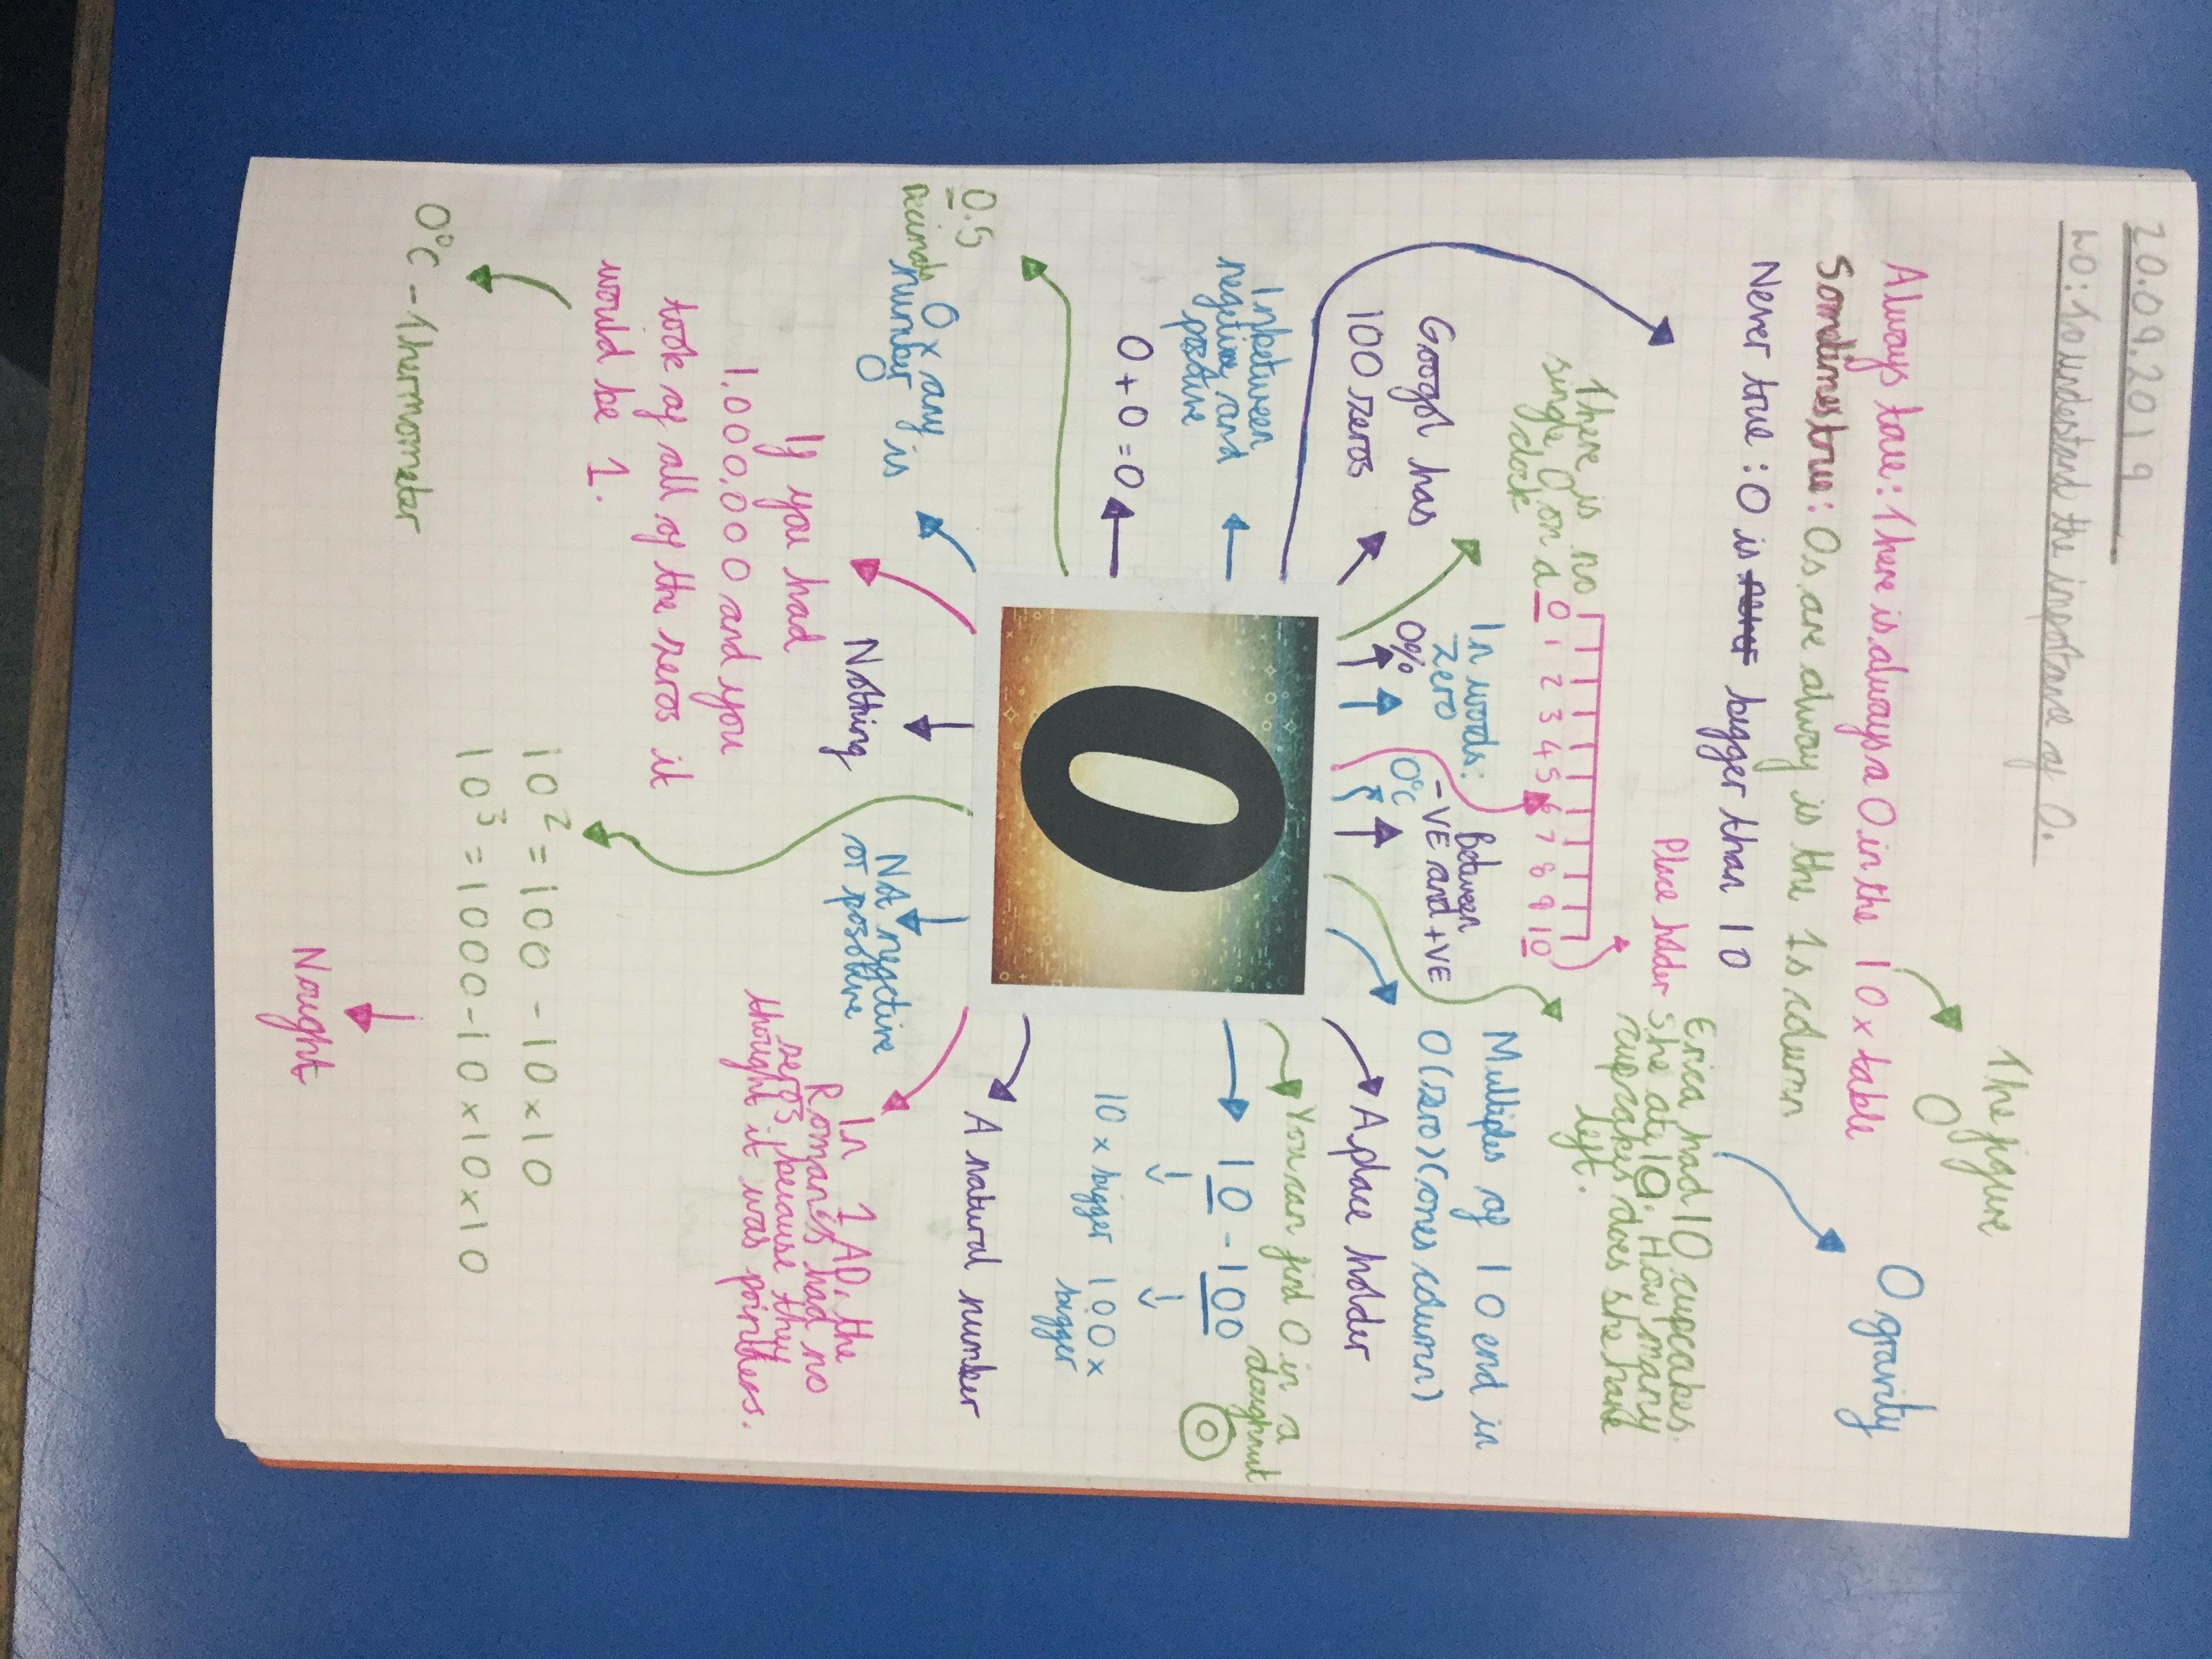 20.09.2019
LO: To understand the importance of 0.
The figure
0
Always true: There is always a 0 in the 10 x table
Sometimes true: 0s are alway is the 1s column
Never true: 0 is bigger than 10
0 gravity
Place holder
Erica had 10 cupcakes.
She ate 10. How many
cupcakes does she have
left.
There is no
single 0 on a
clock
0 1 2 3 4 5 6 7 8 9 10
In words:
zero
Between
-VE and +VE
0%
0°C
Multiples of 10 end in
0 (zero) (ones column)
Googol has
100 zeros
A place holder
Inbetween
negative and
positive
You can find 0 in a
doughnut
0
10 - 100
10 x bigger
100 x
bigger
0 + 0 = 0
0.5
decimals
A natural number
0 x any
number is
0
Nothing
Not negative
or positive
In 1 AD, the
Romans had no
zeros because they
thought it was pointless.
If you had
1,000,000 and you
took of all of the zeros it
would be 1.
10² = 100 - 10 x 10
10³ = 1000 - 10 x 10 x 10
0°C - Thermometer
Nought